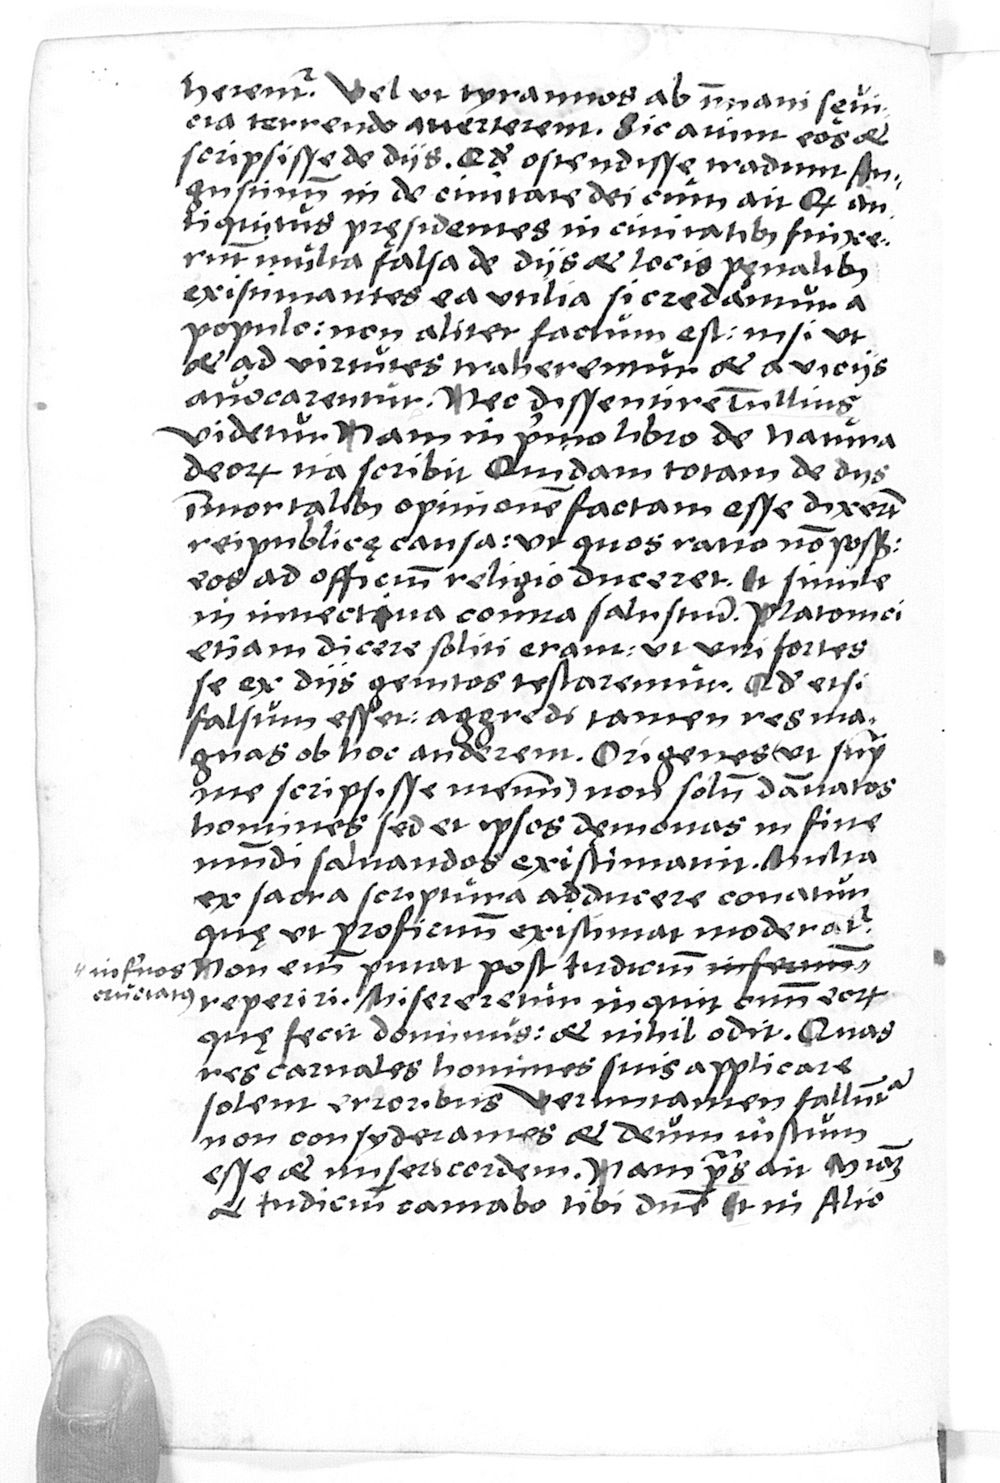 heremr̃. Vel ut tyrannos ab īmani sęui-
cia terrendo auerterent. Sic aiunt eos &
scripsisse de diis. Qd' ostendisse tradunt Au-
gustinū in de ciuitate dei cum ait Qꝫ an
tiquitus pręsidentes in ciuitatibꝫ finxe-
rūt multa falsa de diis & locis pęnalibꝫ
existimantes ea utilia si credantur a
populo: non aliter factum est: nisi ut
& ad virtutes traherentur & a viciis
auocarentur. Nec dissentire Tullius
videtur Nam in p̃mo libro de natura
deorꝝ ita scribit Quidam totam de diis
īmortalibꝫ opinionē factam esse dixerūt
reipublicę causa: ut quos ratio nō poss:
eos ad officiū religio duceret. Et simile
in inuectiua contra salustiū. Platonici
etiam dicere soliti erant: ut viri fortes
se ex diis genitos testarentur. Qd' etsi
falsum esset: aggredi tamen res ma-
gnas ob hoc auderent. Origenes (ut sup̃
me scripsisse memī) non solū dānatos
homines sed et ipsos demonas in fine
mūdi saluandos existimauit. Multa
ex sacra scriptura adducere conatur
quę ut proficiūt existimat moderat̃.
Non eīm putat post iudiciū infernū
"inf'nos
cruciatꝰ
reperiri. Misereretur inquit oīum eorꝝ
quę fecit dominus: & nihil odit. Quas
res carnales homines suis applicare
solent erroribus Veruntamen fallunt̃
non consyderantes & deum iustum
esse & misericordem. Nam p̃s ait Mīam
& iudiciū cantabo tibi dnē Et in Alio